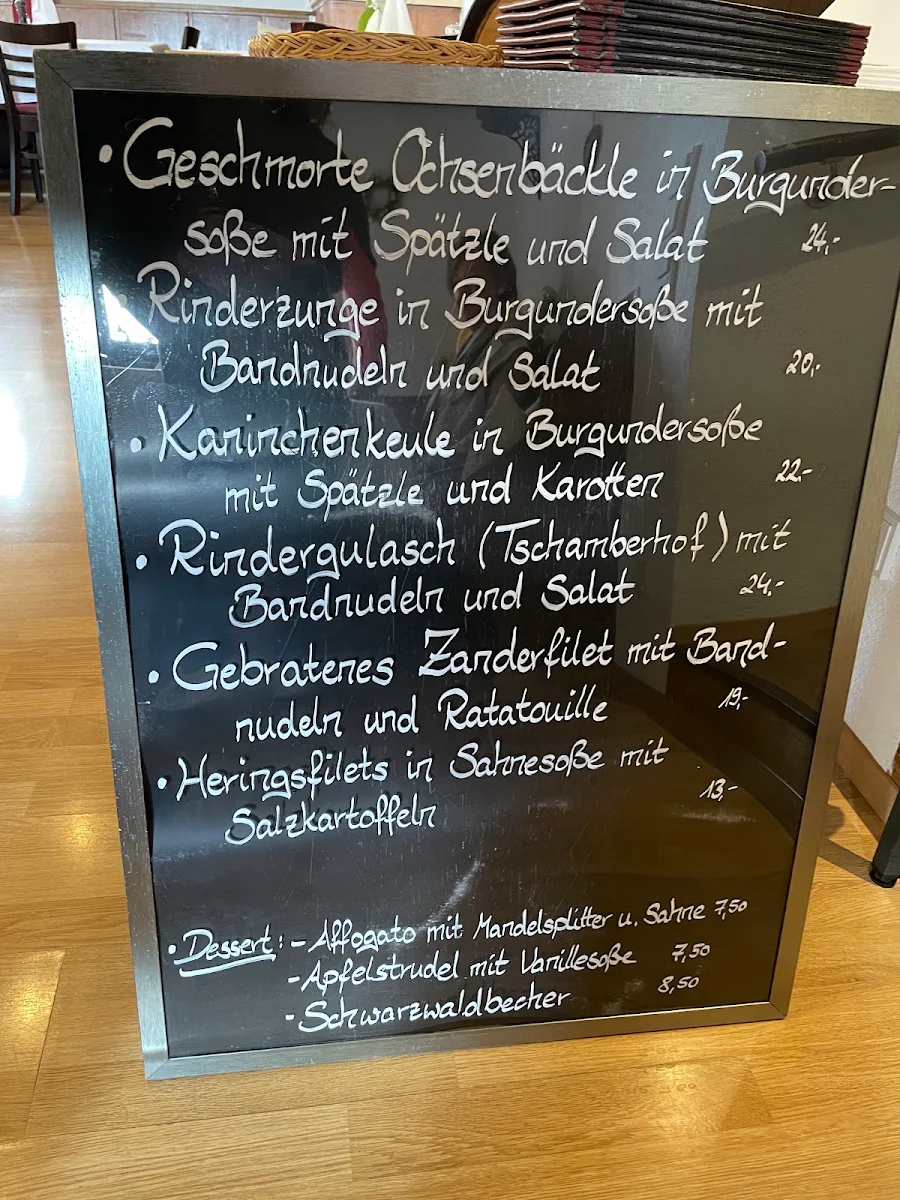 • Geschmorte Ochsenbäckle in Burgunder-
soße mit Spätzle und Salat 24,-
Rinderzunge in Burgundersoße mit
Bandnudeln und Salat 20,-
• Kaninchenkeule in Burgundersoße
mit Spätzle und Karotten 22,-
• Rindergulasch (Tschamberhof) mit
Bandnudeln und Salat 24,-
• Gebratenes Zanderfilet mit Band-
nudeln und Ratatouille 19,-
• Heringsfilets in Sahnesoße mit
Salzkartoffeln 13,-
• Dessert: - Affogato mit Mandelsplitter u. Sahne 7,50
- Apfelstrudel mit Vanillesoße 7,50
- Schwarzwaldbecher 8,50